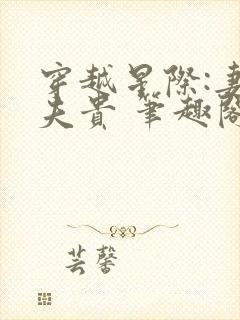 穿越星際:妻
夫貴 筆趣閣
芸馨